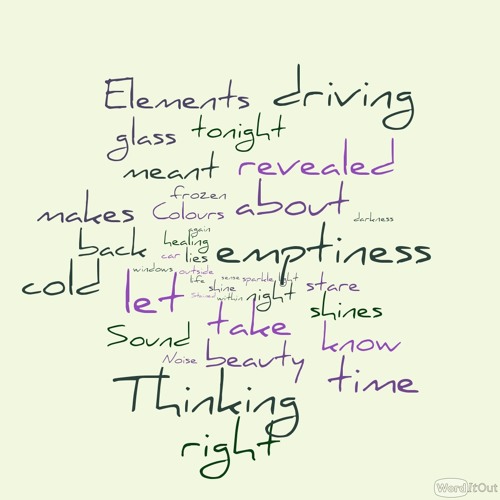 Elements driving
glass tonight
meant revealed
frozen
makes Colours about darkness
again
back healing
car lies emptiness
windows outside
cold life sense sparkle light
let shine night stare
Stained within
shines
Sound take know
Noise beauty
Thinking time
right
WordItOut